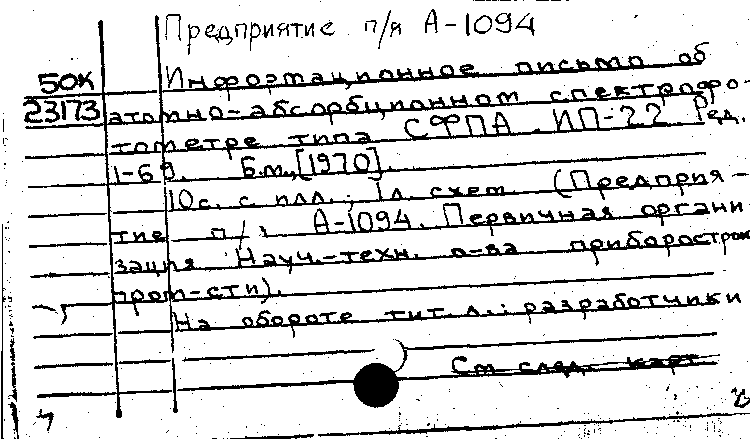 Предприятие п/я А-1094
50К
Информационное письмо об
23173
атомно-абсорбционном спектрофо-
тометре типа СФПА. ИП-22 Ред.
1-69. Б.м.,[1970].
10с. с илл.; 1л. схем (Предприя-
тие п/я А-1094. Первичная органи
зация Науч.-техн. о-ва приборострои
пром-сти).
На обороте тит. л.: разработчики
См след. карт